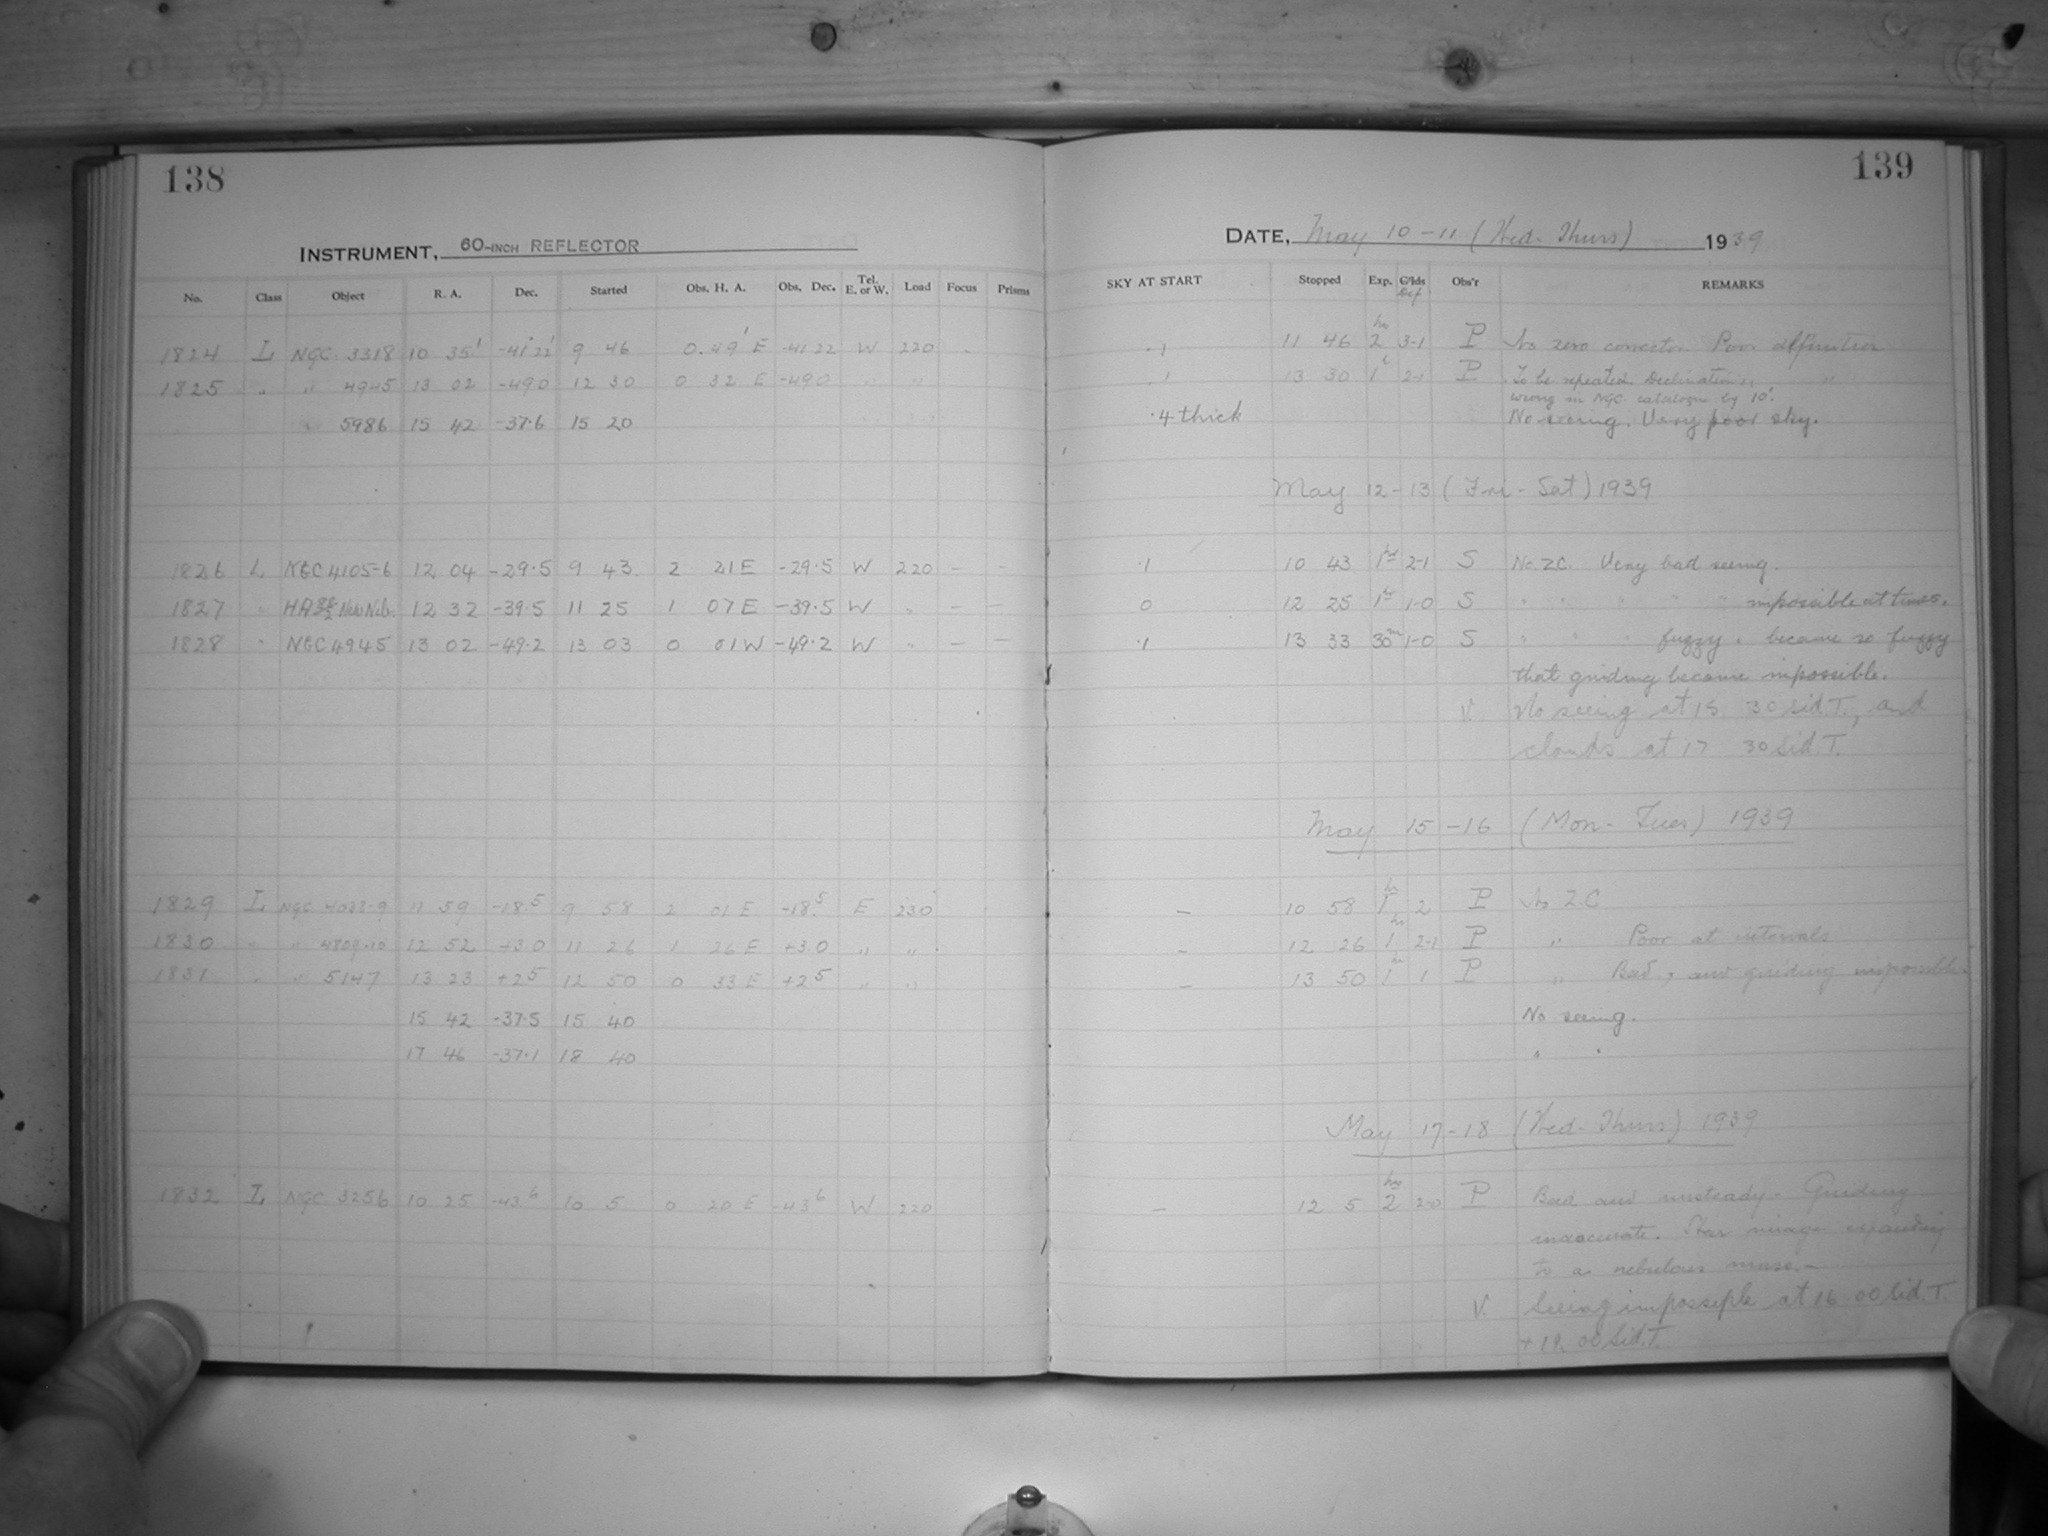 138
INSTRUMENT, 60-INCH REFLECTOR
No. Class Object R. A. Dec. Started Obs. H. A. Obs. Dec. Tel. E. or W. Load Focus Prisms
1824 L NGC 3318 10 35' -41 22' 9 46 0. 49' E -41 22 W 220
1825 " " 4945 13 02 -49.0 12 30 0 32 E -49.0 " "
" 5986 15 42 -37.6 15 20
1826 L NGC 4105-6 12 04 -29.5 9 43 2 21 E -29.5 W 220 - -
1827 " HA New Neb. 12 32 -39.5 11 25 1 07 E -39.5 W " - -
1828 " NGC 4945 13 02 -49.2 13 03 0 01 W -49.2 W " - -
1829 L NGC 11 59 -18.5 9 58 2 01 E -18.5 E 230
1830 " " 4809-10 12 52 +3.0 11 26 1 26 E +3.0 " "
1831 " " 5147 13 23 +2.5 12 50 0 33 E +2.5 " "
15 42 -37.5 15 40
17 46 -37.1 18 40
1832 L NGC 3256 10 25 -43.6 10 5 0 20 E -43.6 W 220
139
DATE, May 10-11 (Wed-Thurs) 1939
SKY AT START Stopped Exp. G'lds Def Obs'r REMARKS
.1 11 46 2 hrs 3-1 P No zero corrector. Poor definition
.1 13 30 1 2-1 P To be repeated. Declination " "
wrong in NGC catalogue by 10'.
.4 thick No seeing. Very poor sky.
May 12-13 (Fri-Sat) 1939
.1 10 43 1hr 2-1 S No. Z.C. Very bad seeing.
0 12 25 1hr 1-0 S " " " " " impossible at times.
.1 13 33 30m 1-0 S " " " fuzzy. became so fuzzy
that guiding became impossible.
V. No seeing at 15 30 Sid.T., and
clouds at 17 30 Sid T.
May 15-16 (Mon-Tues) 1939
- 10 58 1 hr 2 P No Z.C
- 12 26 1 hr 2-1 P " Poor at intervals
- 13 50 1 hr 1 P " Bad, and guiding impossible.
No seeing.
" "
May 17-18 (Wed-Thurs) 1939
- 12 5 2 hrs 2-0 P Bad and unsteady - Guiding
inaccurate. Star image expanding
to a nebulous mass.-
V. Seeing impossible at 16 00 Sid. T.
+ 19 00 Sid.T.